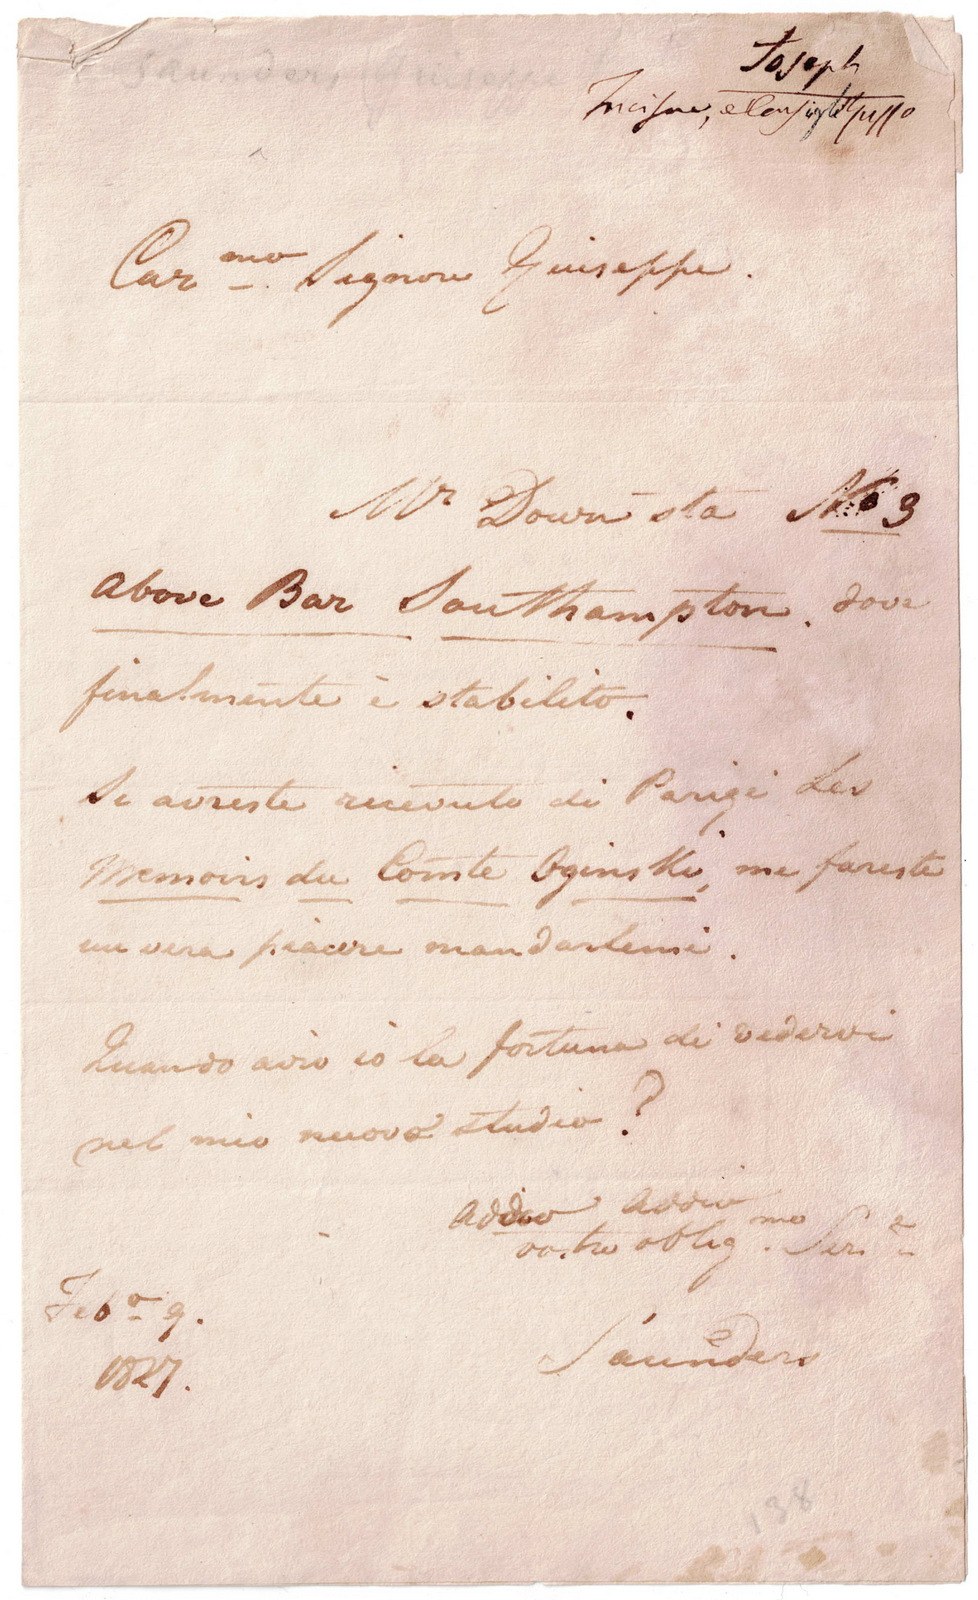 Saunders, Giuseppe
Joseph
Incisore, e Consigl
Car.mo Signore Giuseppe.
Mr Down sta No 3
above Bar Southampton. dove
finalmente è stabilito.
Se avreste ricevuto di Parigi Les
Memoirs du Comte Oginski, me fareste
un vero piacere mandarlemi.
Quando avro io la fortuna di vedervi
nel mio nuovo studio?
Addio Addio
vostro obligmo. Ser.e
Febro 9.
Saunders
1827.
138